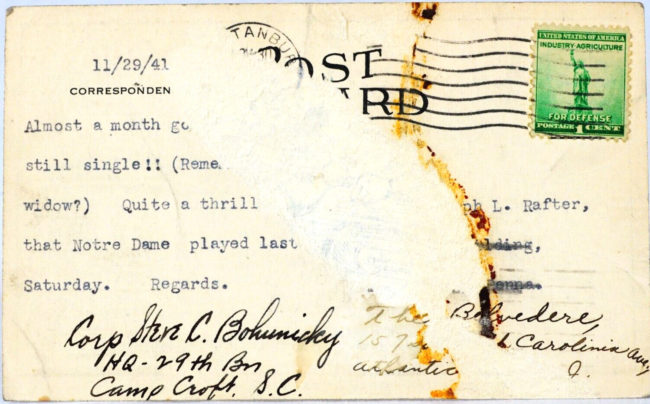 TANBUR
11/29/41
POST
CARD
CORRESPONDEN
UNITED STATES OF AMERICA
INDUSTRY AGRICULTURE
FOR DEFENSE
POSTAGE 1 CENT
Almost a month go
still single!! (Reme
widow?) Quite a thrill
that Notre Dame played last
Saturday. Regards.
ph L. Rafter,
lding,
Penna.
Corp Steve C. Bohunicky
HQ-29th Bn
Camp Croft, S.C.
The Belvedere,
Carolinia Ave,
atlantic
J.